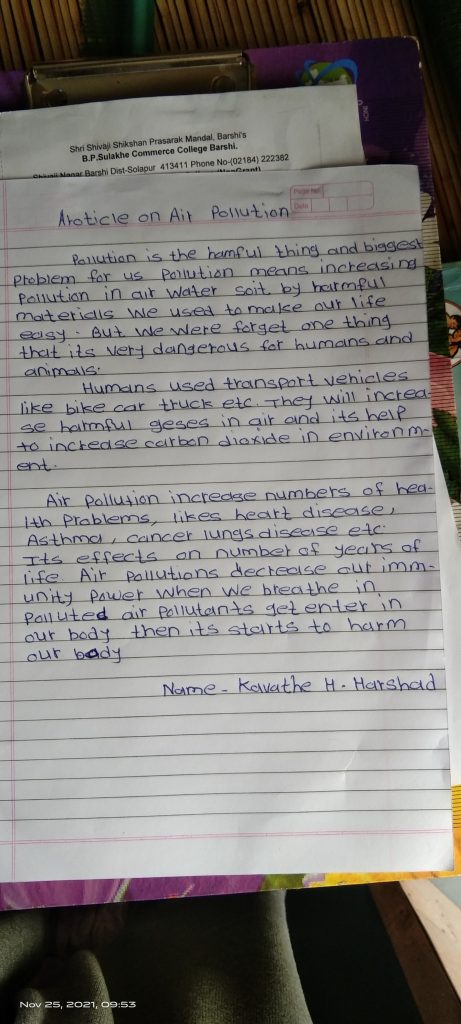 Shri Shivaji Shikshan Prasarak Mandal, Barshi's
B.P.Sulakhe Commerce College Barshi.
Shivaji Nagar Barshi Dist-Solapur 413411 Phone No-(02184) 222382
Page No.
Date
Aroticle on Air Pollution
Pollution is the hamful thing and biggest
problem for us pollution means increasing
pollution in air water soit by harmful
materials We used to make our life
easy. But we were forget one thing
that its very dangerous for humans and
animals.
Humans used transport vehicles
like bike car truck etc. They will increa-
se harmful geses in air and its help
to increase carbon dioxide in environm-
ent.
Air pollution increase numbers of hea-
lth problems, likes heart disease,
Asthma, cancer lungs disease etc.
Its effects on number of years of
life. Air pollutions decrease our imm-
unity power when we breathe in
polluted air pollutants get enter in
our body then its starts to harm
our body
Name - Kavathe H. Harshad
Nov 25, 2021, 09:53